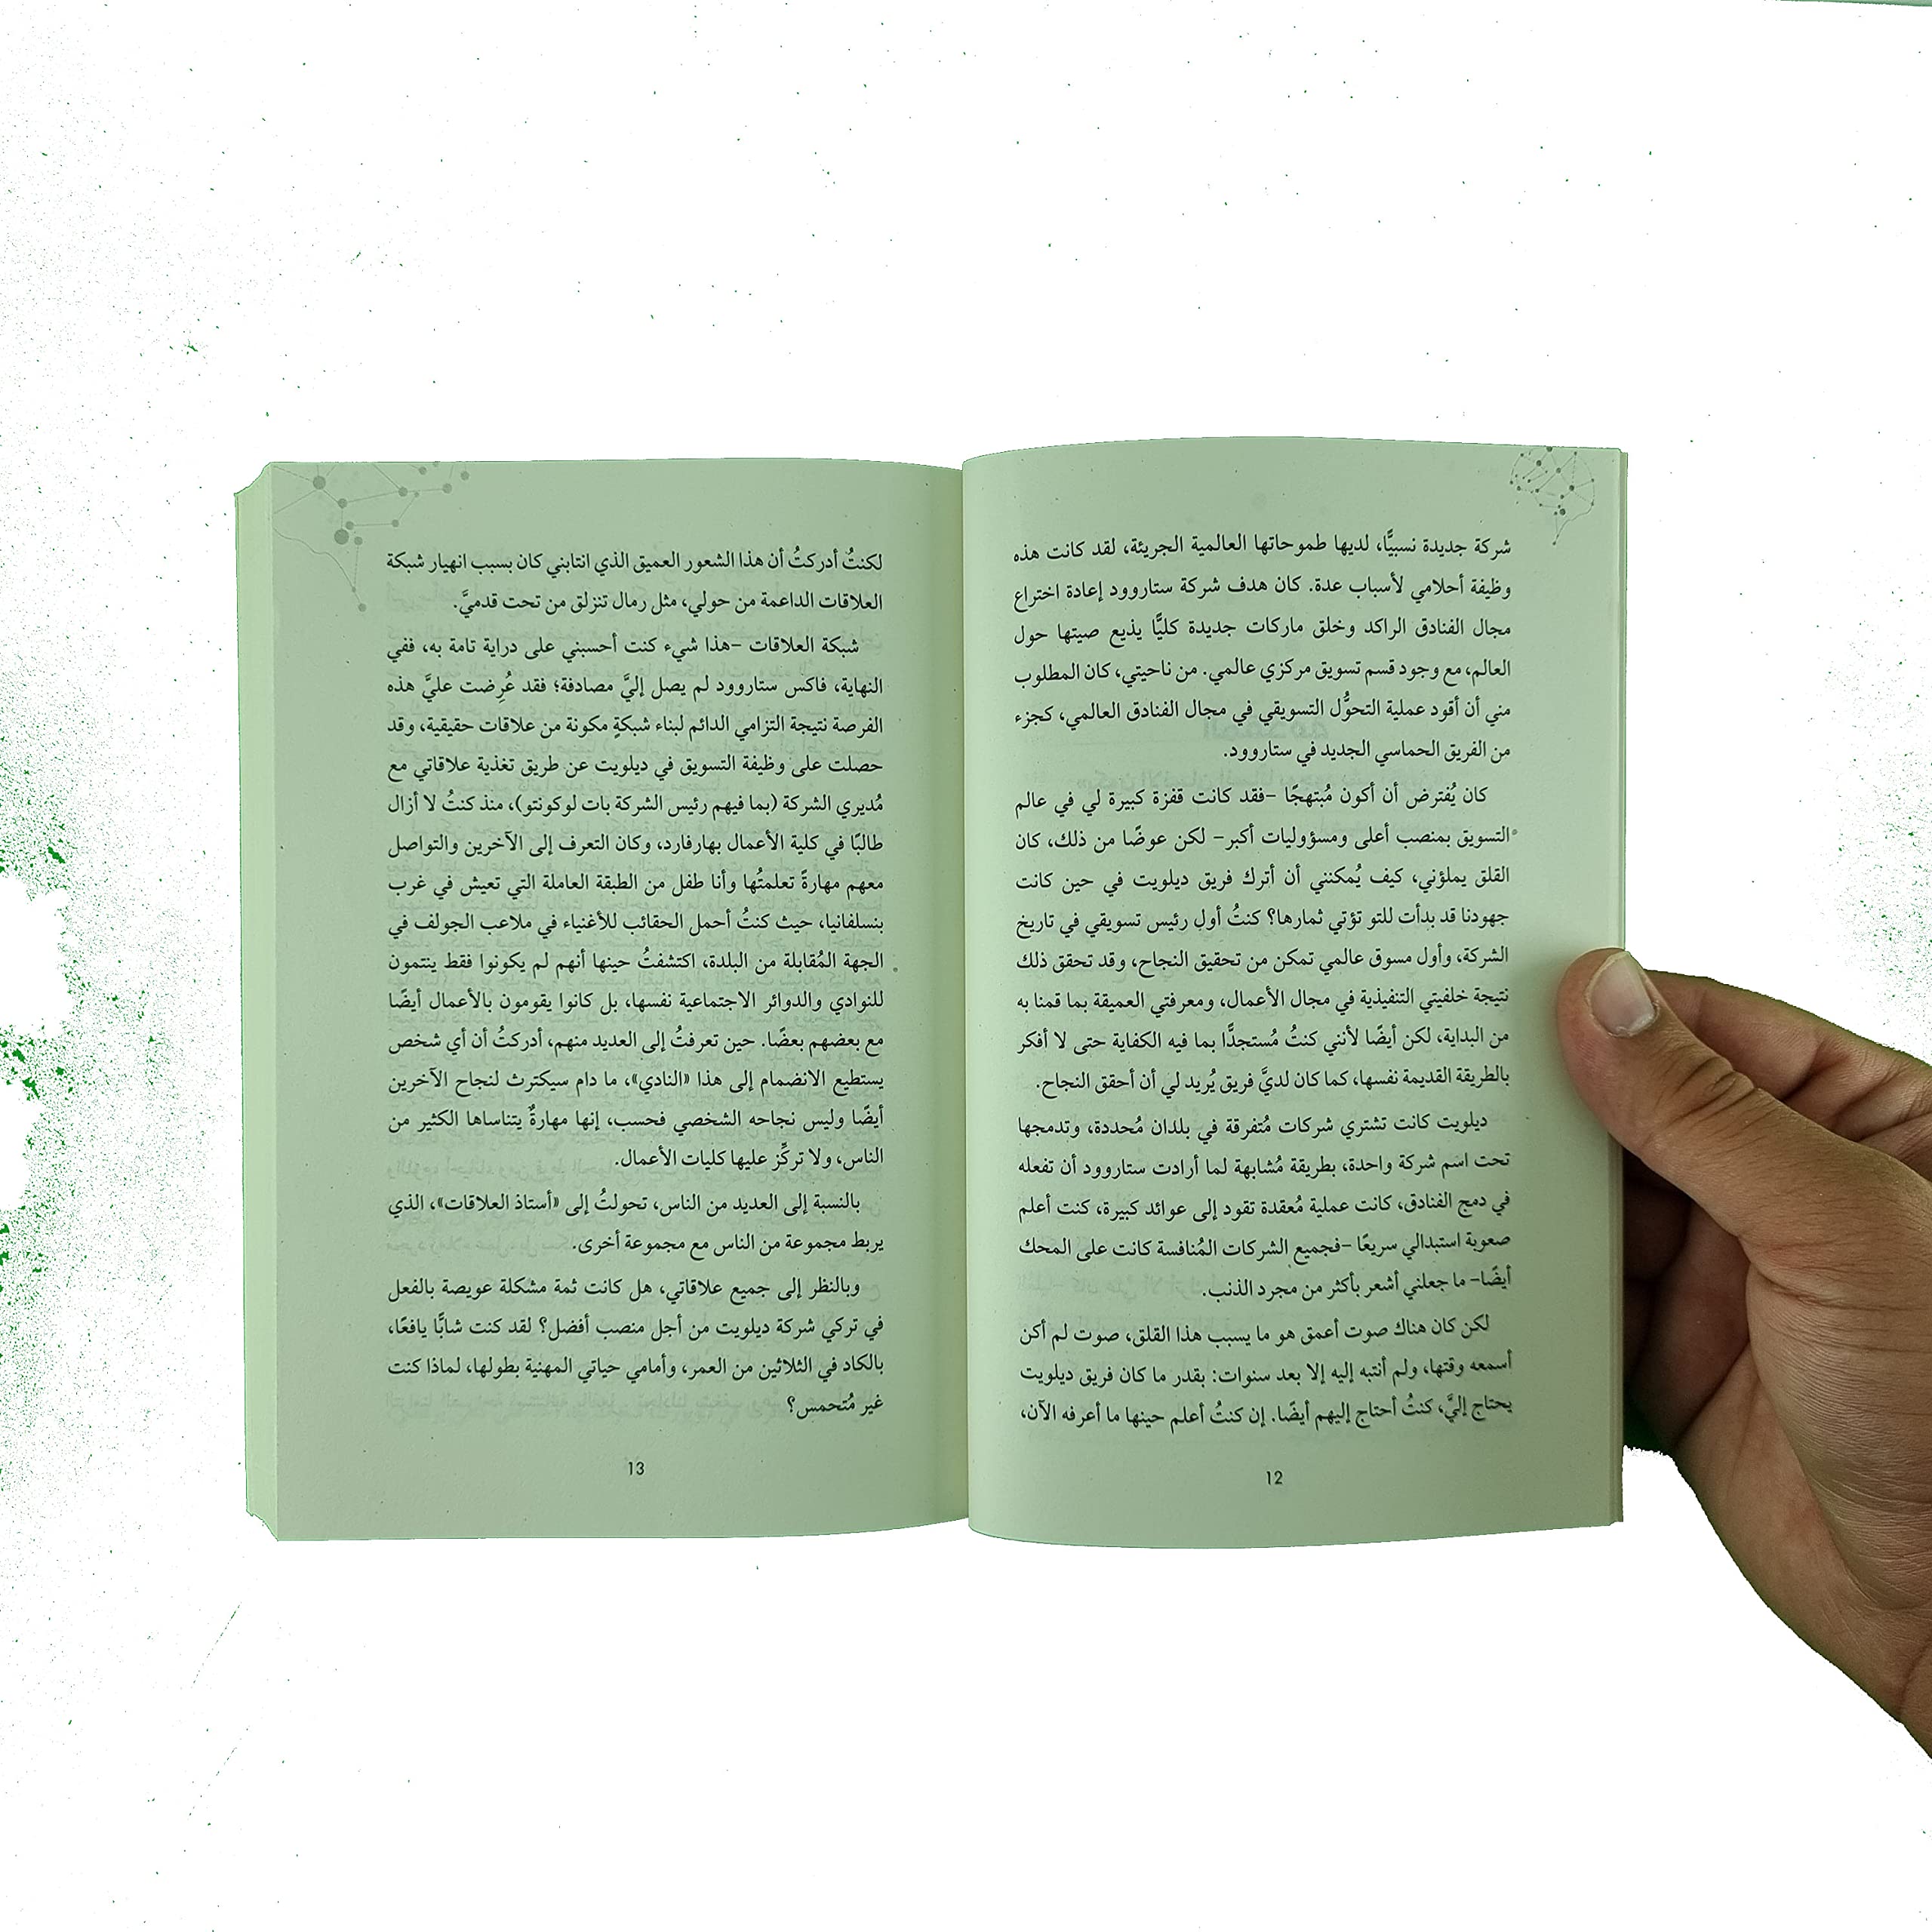 شركة جديدة نسبيًّا، لديها طموحاتها العالمية الجريئة، لقد كانت هذه
وظيفة أحلامي لأسباب عدة. كان هدف شركة ستاروود إعادة اختراع
مجال الفنادق الراكد وخلق ماركات جديدة كليًّا يذيع صيتها حول
العالم، مع وجود قسم تسويق مركزي عالمي. من ناحيتي، كان المطلوب
مني أن أقود عملية التحوُّل التسويقي في مجال الفنادق العالمي، كجزء
من الفريق الحماسي الجديد في ستاروود.
كان يُفترض أن أكون مُبتهجًا –فقد كانت قفزة كبيرة لي في عالم
التسويق بمنصب أعلى ومسؤوليات أكبر– لكن عوضًا من ذلك، كان
القلق يملؤني، كيف يُمكنني أن أترك فريق ديلويت في حين كانت
جهودنا قد بدأت للتو تؤتي ثمارها؟ كنتُ أول رئيس تسويقي في تاريخ
الشركة، وأول مسوق عالمي تمكن من تحقيق النجاح، وقد تحقق ذلك
نتيجة خلفيتي التنفيذية في مجال الأعمال، ومعرفتي العميقة بما قمنا به
من البداية، لكن أيضًا لأنني كنتُ مُستجدًّا بما فيه الكفاية حتى لا أفكر
بالطريقة القديمة نفسها، كما كان لديَّ فريق يُريد لي أن أحقق النجاح.
ديلويت كانت تشتري شركات مُتفرقة في بلدان مُحددة، وتدمجها
تحت اسم شركة واحدة، بطريقة مُشابهة لما أرادت ستاروود أن تفعله
في دمج الفنادق، كانت عملية مُعقدة تقود إلى عوائد كبيرة، كنت أعلم
صعوبة استبدالي سريعًا –فجميع الشركات المُنافسة كانت على المحك
أيضًا– ما جعلني أشعر بأكثر من مجرد الذنب.
لكن كان هناك صوت أعمق هو ما يسبب هذا القلق، صوت لم أكن
أسمعه وقتها، ولم أنتبه إليه إلا بعد سنوات: بقدر ما كان فريق ديلويت
يحتاج إليَّ، كنتُ أحتاج إليهم أيضًا. إن كنتُ أعلم حينها ما أعرفه الآن،
12
لكنتُ أدركتُ أن هذا الشعور العميق الذي انتابني كان بسبب انهيار شبكة
العلاقات الداعمة من حولي، مثل رمال تنزلق من تحت قدميَّ.
شبكة العلاقات –هذا شيء كنت أحسبني على دراية تامة به، ففي
النهاية، فاكس ستاروود لم يصل إليَّ مصادفة؛ فقد عُرِضت عليَّ هذه
الفرصة نتيجة التزامي الدائم لبناء شبكةٍ مكونة من علاقات حقيقية، وقد
حصلت على وظيفة التسويق في ديلويت عن طريق تغذية علاقاتي مع
مُديري الشركة (بما فيهم رئيس الشركة بات لوكونتو)، منذ كنتُ لا أزال
طالبًا في كلية الأعمال بهارفارد، وكان التعرف إلى الآخرين والتواصل
معهم مهارةً تعلمتُها وأنا طفل من الطبقة العاملة التي تعيش في غرب
بنسلفانيا، حيث كنتُ أحمل الحقائب للأغنياء في ملاعب الجولف في
الجهة المُقابلة من البلدة، اكتشفتُ حينها أنهم لم يكونوا فقط ينتمون
للنوادي والدوائر الاجتماعية نفسها، بل كانوا يقومون بالأعمال أيضًا
مع بعضهم بعضًا. حين تعرفتُ إلى العديد منهم، أدركتُ أن أي شخص
يستطيع الانضمام إلى هذا «النادي»، ما دام سيكترث لنجاح الآخرين
أيضًا وليس نجاحه الشخصي فحسب، إنها مهارةٌ يتناساها الكثير من
الناس، ولا تركِّز عليها كليات الأعمال.
بالنسبة إلى العديد من الناس، تحولتُ إلى «أستاذ العلاقات»، الذي
يربط مجموعة من الناس مع مجموعة أخرى.
وبالنظر إلى جميع علاقاتي، هل كانت ثمة مشكلة عويصة بالفعل
في تركي شركة ديلويت من أجل منصب أفضل؟ لقد كنت شابًّا يافعًا،
بالكاد في الثلاثين من العمر، وأمامي حياتي المهنية بطولها، لماذا كنت
غير مُتحمس؟
13